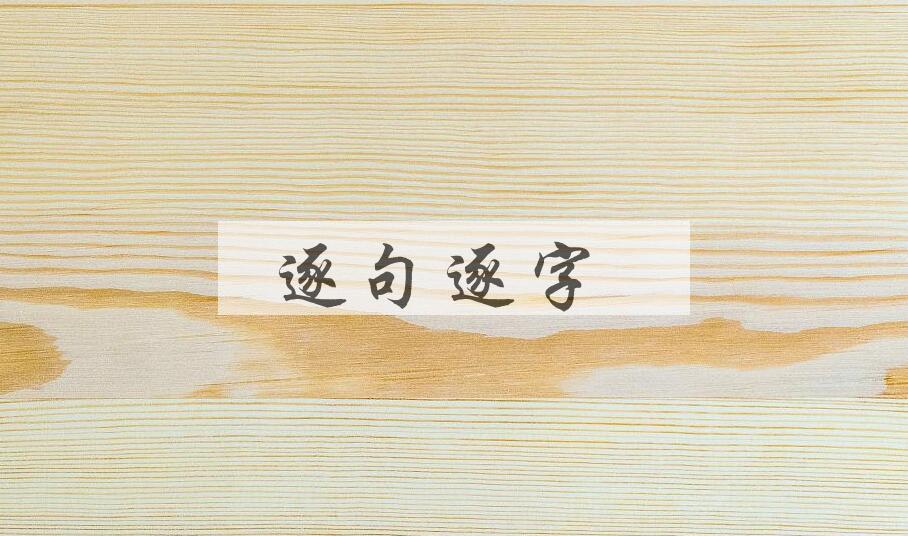 逐句逐字